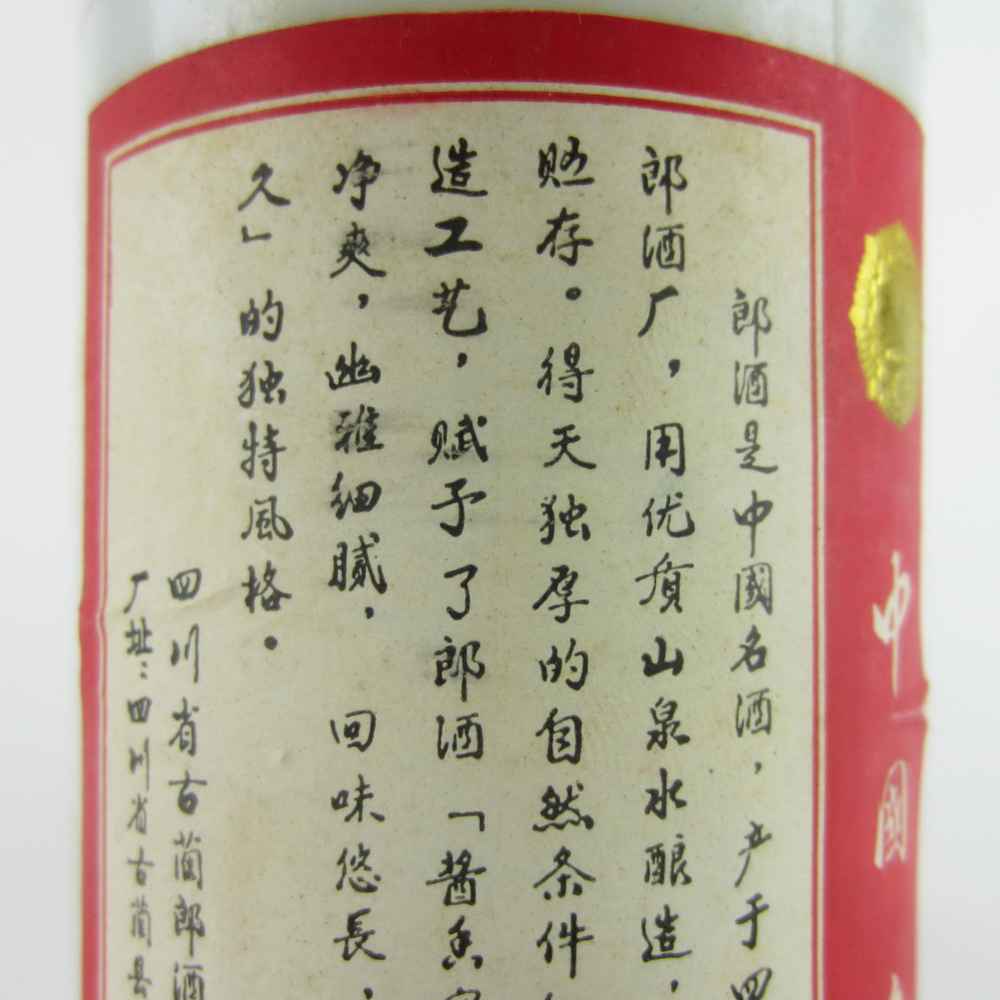 中國
郎酒是中國名酒,产于四
郎酒厂,用优质山泉水酿造,
贮存。得天独厚的自然条件
造工艺,赋予了郎酒「酱香
净爽,幽雅细腻,回味悠長,
久」的独特風格。
四川省古蔺郎酒
厂址:四川省古蔺县